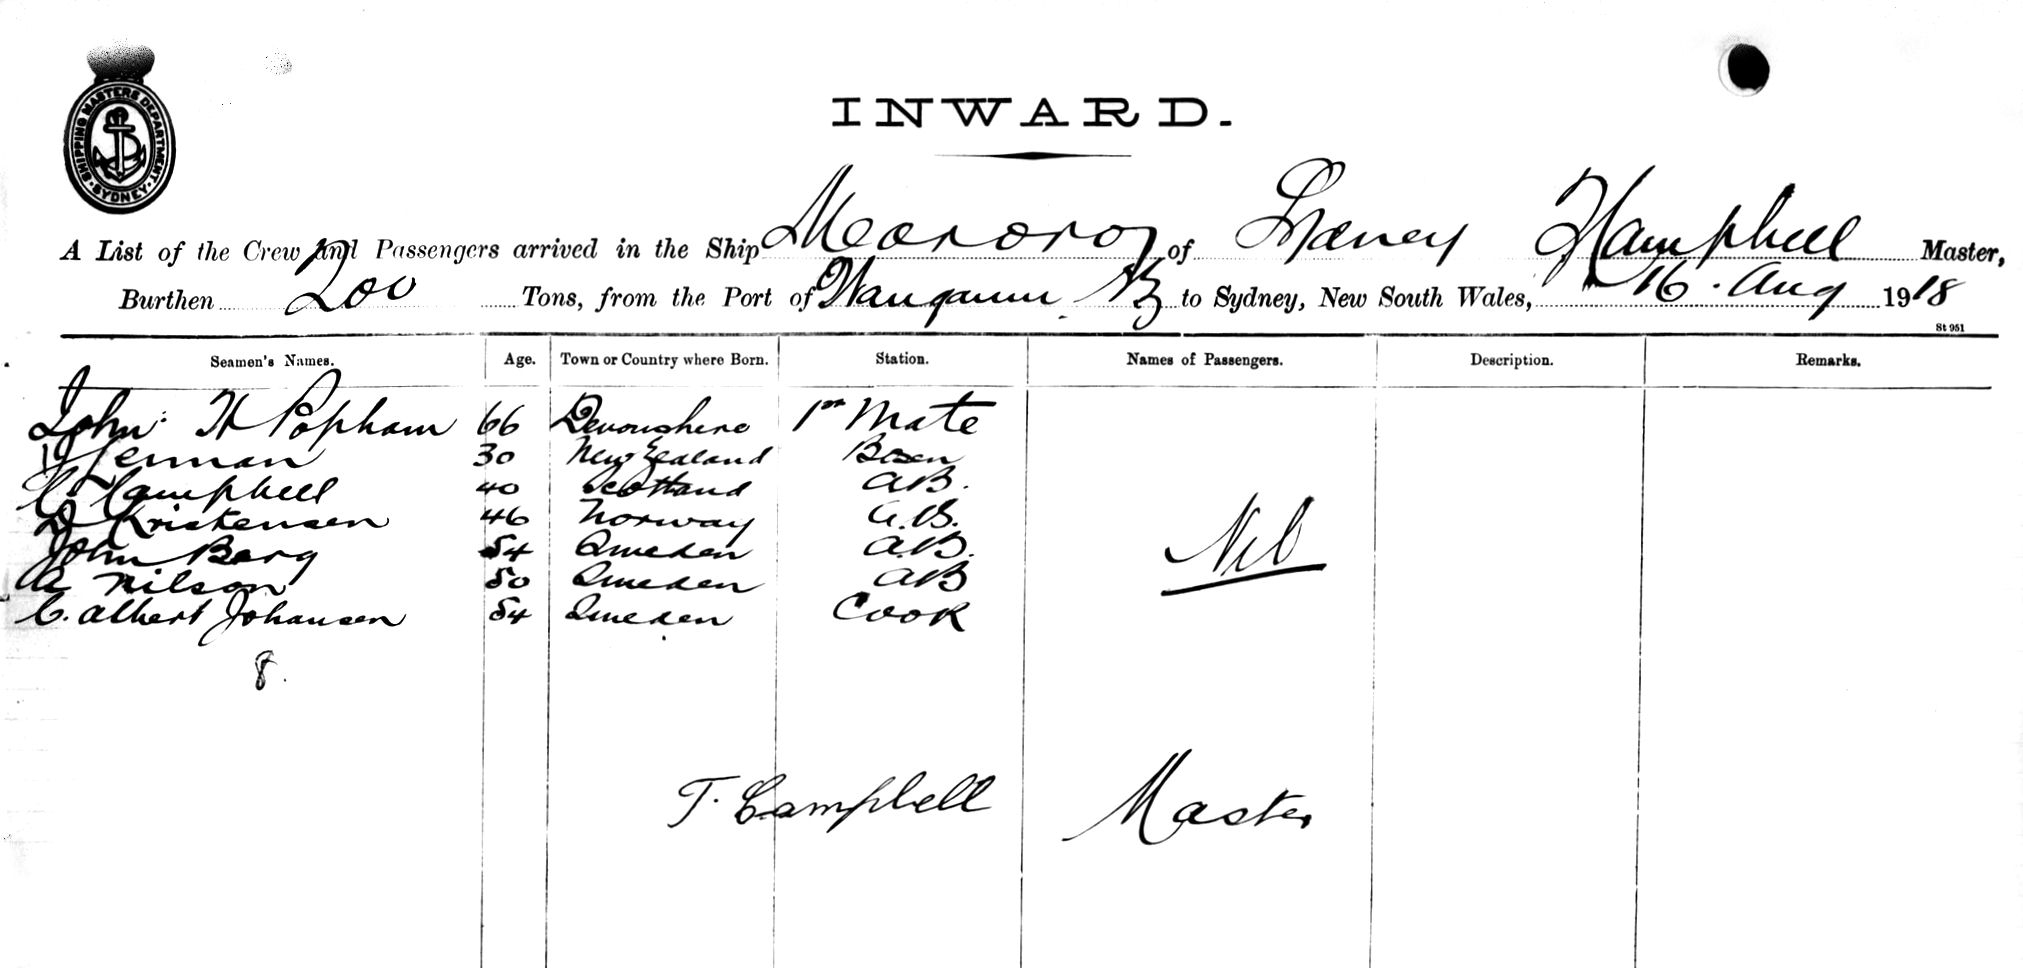 SHIPPING MASTERS DEPARTMENT. SYDNEY
INWARD.
A List of the Crew and Passengers arrived in the Ship of Sydney T Campbell Master,
Burthen 200 Tons, from the Port of Wanganui NZ to Sydney, New South Wales, 16. Aug 1918
St 951
Seamen's Names. Age. Town or Country where Born. Station. Names of Passengers. Description. Remarks.
John H Popham 66 Devonshire 1st Mate
30 New Zealand Bosen
C. Campbell 40 Scotland AB.
Kristensen 46 Norway A.B.
John Berg 54 Sweden A.B.
A Nilson 50 Sweden AB
C. Albert Johansen 54 Sweden Cook
Nil
8.
T. Campbell Master